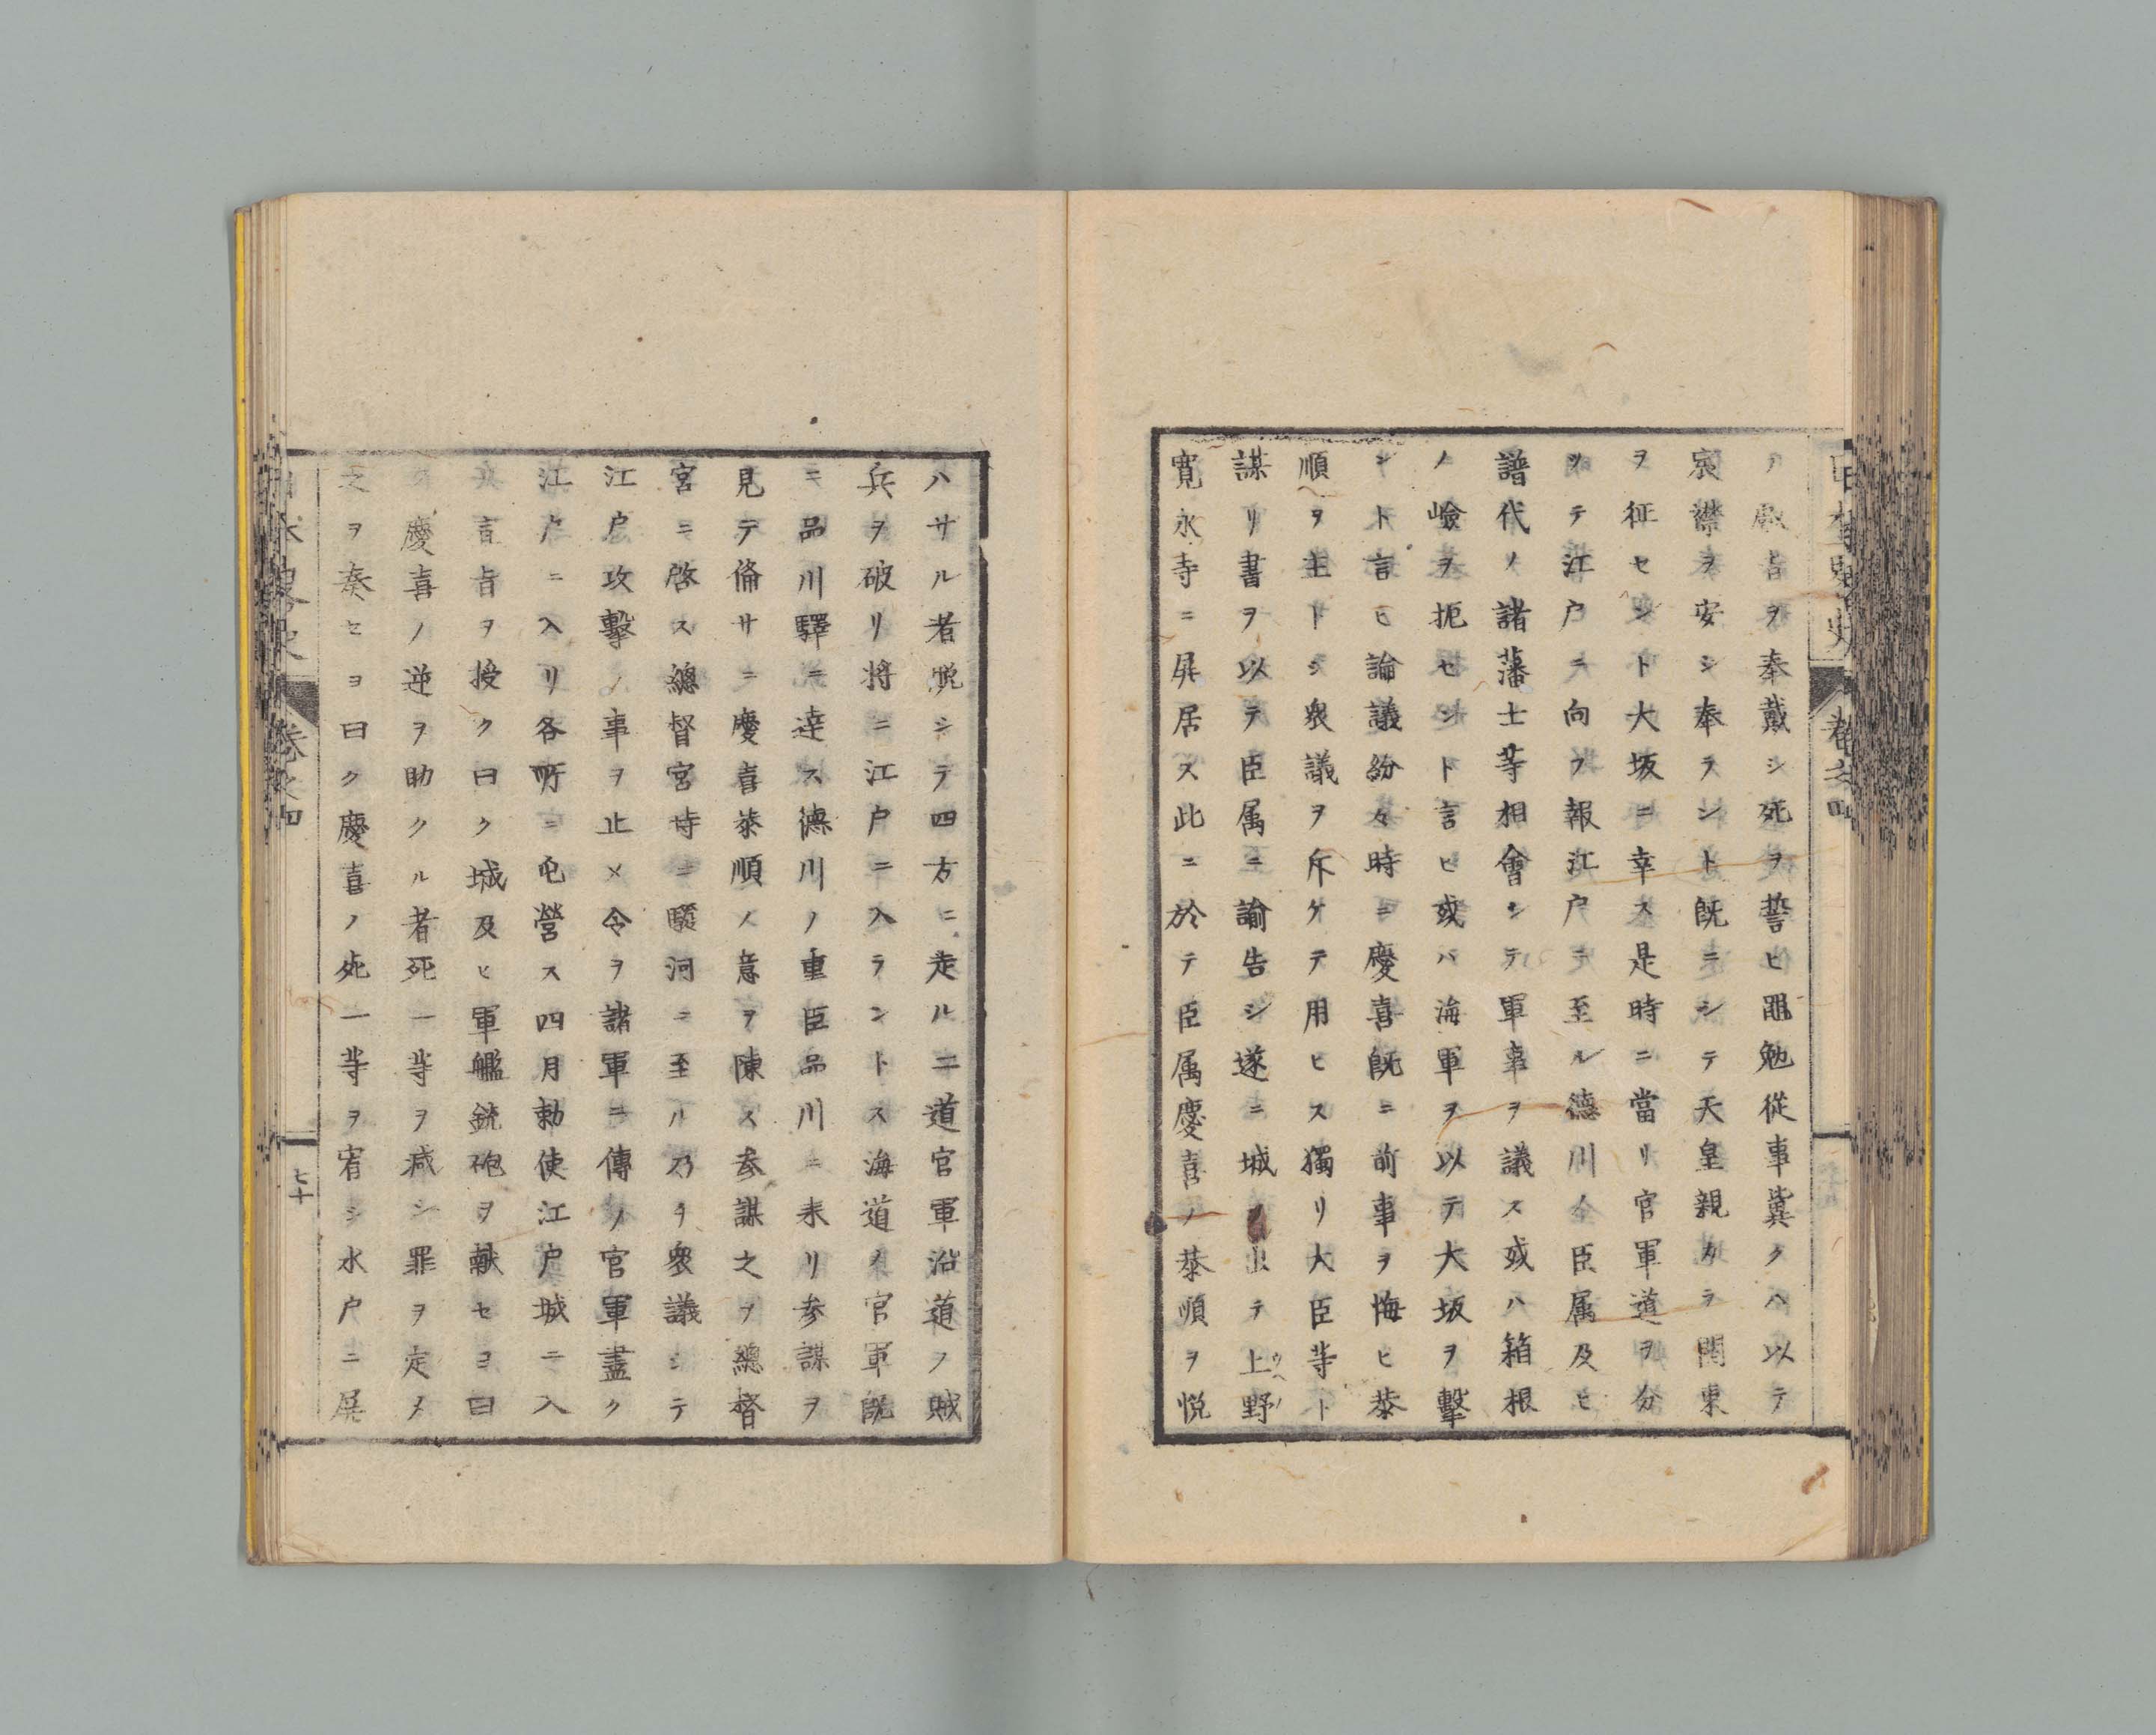 ノ厥旨ヲ奉戴シ死ヲ誓ヒ黽勉從事冀クハ以テ
宸襟ヲ安シ奉ラント既ニシテ天皇親カラ関東
ヲ征セント大坂ニ幸ス是時ニ當リ官軍道ヲ分
シテ江戸ニ向フ報江戸ニ至ル德川仝臣属及ヒ
譜代ノ諸藩士等相會シテ軍事ヲ議ス或ハ箱根
ノ嶮ヲ扼セント言ヒ或バ海軍ヲ以テ大坂ヲ擊
ント言ヒ論議紛々時ニ慶喜既ニ前事ヲ悔ヒ恭
順ヲ主トシ衆議ヲ斥ケテ用ヒス獨リ大臣等ト
謀リ書ヲ以テ臣属ニ諭告シ遂ニ城ヲ出テ上野
寛永寺ニ屏居ス此ニ於テ臣属慶喜ノ恭順ヲ悦
ハサル者脱シテ四方ニ走ル二道官軍沿道ノ賊
兵ヲ破リ将ニ江戸ニ入ラントス海道ノ官軍既
ニ品川驛ニ達ス德川ノ重臣品川ニ来リ参謀ヲ
見テ偹サニ慶喜恭順ノ意ヲ陳ス参謀之ヲ總督
宮ニ啓ス總督宮時ニ駿河ニ至ル乃チ衆議シテ
江戸攻擊ノ事ヲ止メ令ヲ諸軍ニ傳ノ官軍盡ク
江戸ニ入リ各所ニ屯營ス四月勅使江戸城ニ入
兵言旨ヲ授ク曰ク城及ヒ軍艦銃砲ヲ献セヨ曰
慶喜ノ逆ヲ助クル者死一等ヲ减シ罪ヲ定メ
之ヲ奏セヨ曰ク慶喜ノ死一等ヲ宥シ水戸ニ屏
七十